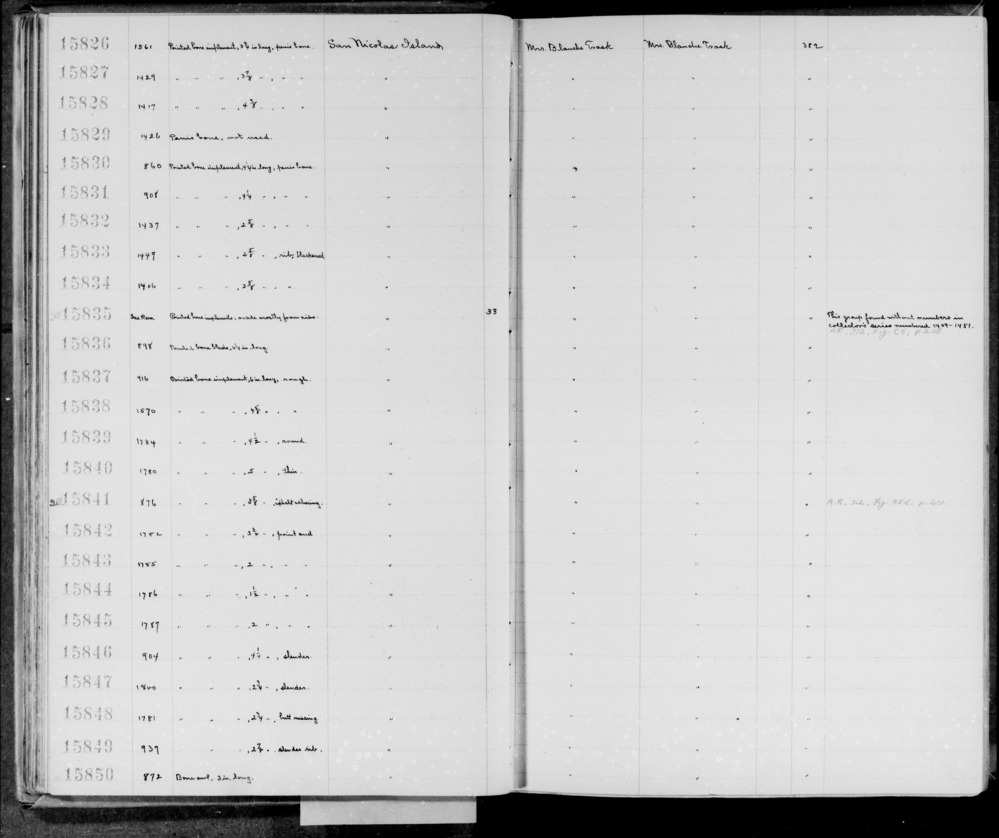 15826 1561 Pointed bone implement, 3⅞ in. long, penis bone. San Nicolas Island, Mrs. Blanche Trask Mrs. Blanche Trask 382
15827 1429 " " " , 3⅞ " , " " " " " "
15828 1417 " " " , 4⅜ " , " " " " " "
15829 1426 Penis bone, not used. " " " "
15830 860 Pointed bone implement, long, penis bone. " " " "
15831 908 " " " , " , " " " " " "
15832 1437 " " " , " , " " " " " "
15833 1449 " " " , 2⅝ " , rib, blackened " " " "
15834 1406 " " " , " " " " " " "
15835 See Rem. Pointed bone implements, made mostly from ribs. " 33 " " " This group found without numbers in
collector's series numbered 1409-1451.
15836 898 Pointed bone blade, in. long. " " " "
15837 916 Pointed bone implement, 6 in. long, rough. " " " "
15838 1570 " " " , 4⅝ " , " " " " "
15839 1784 " " " , 4½ " , round. " " " "
15840 1780 " " " , 5 " , thin. " " " "
15841 876 " " " , 3⅝ " , asphalt adhering. " " " "
15842 1782 " " " , " , point end " " " "
15843 1785 " " " , 2 " , " " " " " "
15844 1786 " " " , 1½ " , " " " " " "
15845 1787 " " " , 2 " , " " " " " "
15846 904 " " " , " , slender. " " " "
15847 1800 " " " , " , slender. " " " "
15848 1781 " " " , " , butt missing " " " "
15849 939 " " " , " slender rib. " " " "
15850 872 Bone awl, 3 in. long. " " " "